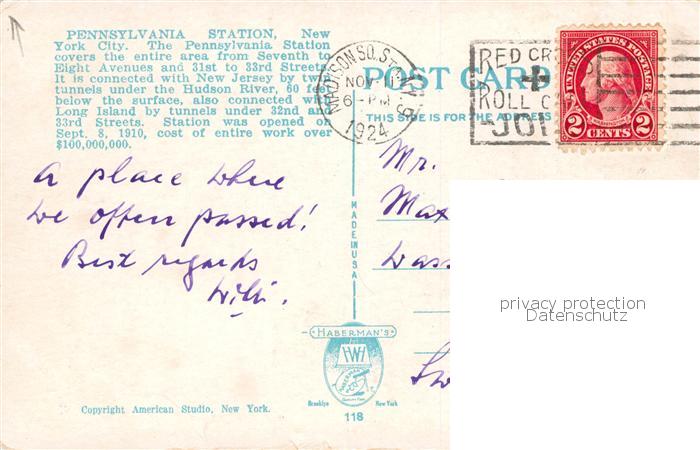 PENNSYLVANIA STATION, New
York City. The Pennsylvania Station
covers the entire area from Seventh to
Eight Avenues and 31st to 33rd Streets.
It is connected with New Jersey by two
tunnels under the Hudson River, 60 fe
below the surface, also connected wi
Long Island by tunnels under 32nd and
33rd Streets. Station was opened on
Sept. 8, 1910, cost of entire work over
$100,000,000.
A place where
we often passed!
Best regards
Willi.
Copyright American Studio, New York.
MADISON SQ. STA. N.Y.
NOV
6-PM
1924
POST CARD
THIS SIDE IS FOR THE ADDRESS
RED CR
ROLL C
JOI
UNITED STATES POSTAGE
2 CENTS 2
MADE IN USA
Mr.
Max
Wass
Sw
HABERMAN'S
Brooklyn New York
118
privacy protection
Datenschutz